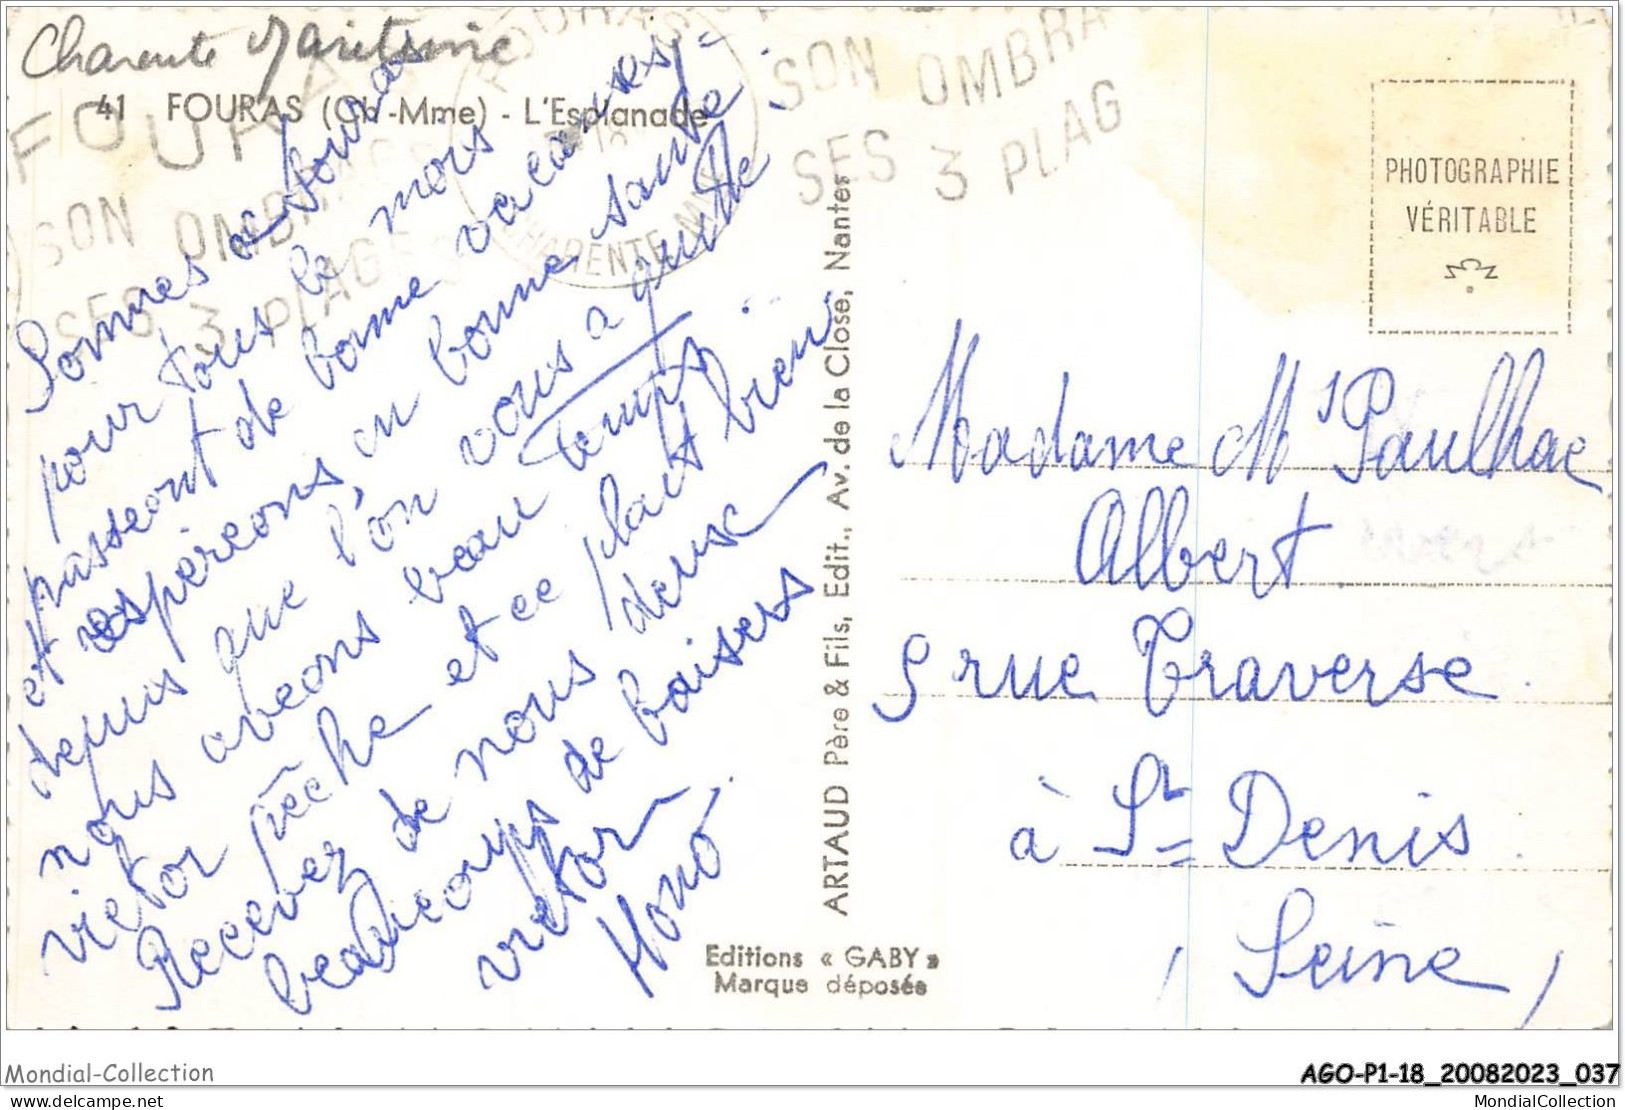 Charente Maritime
41 FOURAS (Ch-Mme) - L'Esplanade
FOURAS
SON OMBRAGES
SES 3 PLAGES
FOURAS
CHARENTE MME
SON OMBRA
SES 3 PLAG
Sommes a Fouras
pour tous le mois
passeont de bonne vacances,
et espèreons, en bonne santé
depuis que l'on vous a quitté.
nous aveons beau temps.
victor pêche et ce plait bien.
Recevez de nous deux
beaucoups de baisers
victor
Nono.
PHOTOGRAPHIE
VÉRITABLE
Madame Mrs Paulhac
Albert.
9 rue Traverse.
à St= Denis.
(Seine)
ARTAUD Père & Fils, Edit., Av. de la Close, Nantes
Editions « GABY »
Marque déposée
Mondial-Collection
AGO-P1-18_20082023_037
delcampe.net
MondialCollection